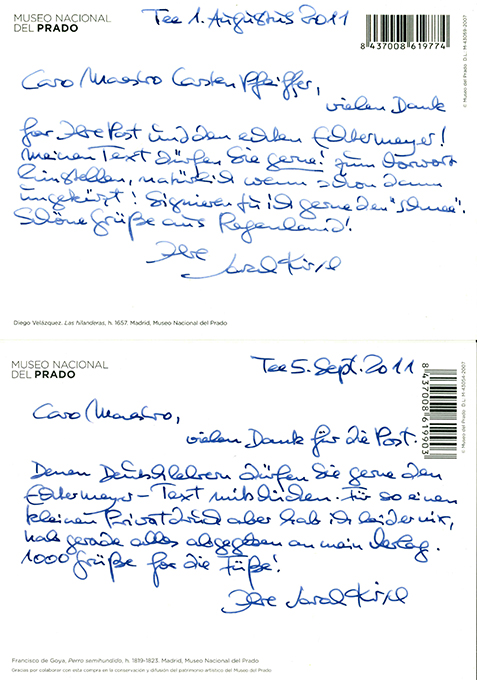 MUSEO NACIONAL
DEL PRADO
Tee 1. Augustus 2011
8 437008 619774
© Museo del Prado D.L.: M-43058-2007
Caro Maestro Carsten Pfeiffer,
vielen Dank
für Ihre Post und den echten Echtermeyer!
Meinen Text dürfen Sie gerne! zum Vorwort
Einstellen, natürlich wenn schon dann
ungekürzt! Signieren tu ich gerne den "Schnee".
Schöne Grüße aus Regenland!
Ihre
Sarah Kirsch
Diego Velázquez. Las hilanderas, h. 1657. Madrid, Museo Nacional del Prado
MUSEO NACIONAL
DEL PRADO
Tee 5. Sept. 2011
8 437008 619903
© Museo del Prado D.L.: M-43054-2007
Caro Maestro,
vielen Dank für die Post.
Denen Deutschlehrern dürfen Sie gerne den
Echtermeyer-Text mitschicken. Für so einen
kleinen Privatdruck aber hab ich leider nix,
hab gerade alles abgegeben an mein Verlag.
1000 Grüße für die Füße!
Ihre Sarah Kirsch
Francisco de Goya, Perro semihundido, h. 1819-1823. Madrid, Museo Nacional del Prado
Gracias por colaborar con esta compra en la conservación y difusión del patrimonio artístico del Museo del Prado